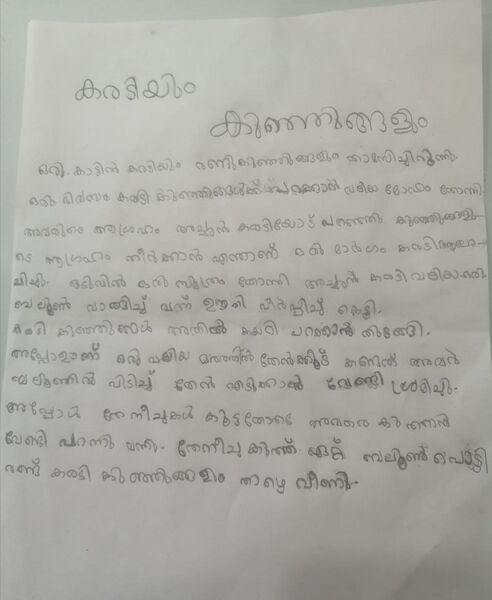 കരടിയും
കുഞ്ഞുങ്ങളും
ഒരു കാട്ടിൽ കരടിയും രണ്ടുകുഞ്ഞുങ്ങളും താമസിച്ചിരുന്നു.
ഒരു ദിവസം കരടി കുഞ്ഞുങ്ങൾക്ക് പറക്കാൻ വലിയ മോഹം തോന്നി
അവരുടെ ആഗ്രഹം അച്ഛൻ കരടിയോട് പറഞ്ഞു കുഞ്ഞുങ്ങളു-
ടെ ആഗ്രഹം തീർക്കാൻ എന്താണ് ഒരു മാർഗം കരടി ആലോ-
ചിച്ചു. ഒടുവിൽ ഒരു സൂത്രം തോന്നി അച്ഛൻ കരടി വലിയൊരു
ബലൂൺ വാങ്ങിച്ച് വന്ന് ഊതി വീർപ്പിച്ച് കെട്ടി.
കരടി കുഞ്ഞുങ്ങൾ അതിൽ കയറി പറഞാൻ തുടങ്ങി.
അപ്പോളാണ് ഒരു വലിയ മരത്തിൽ തേൻകൂട് കണ്ടത് അവർ
ബലൂണിൽ പിടിച്ച് തേൻ എടുക്കാൻ വേണ്ടി ശ്രമിച്ചു.
അപ്പോൾ തേനീച്ചകൾ കൂട്ടത്തോടെ അവരെ കുത്താൻ
വേണ്ടി പറന്നു വന്നു. തേനീച്ച കുത്ത് ഏറ്റ് ബലൂൺ പൊട്ടി
രണ്ട് കരടി കുഞ്ഞുങ്ങളും താഴെ വീണു.